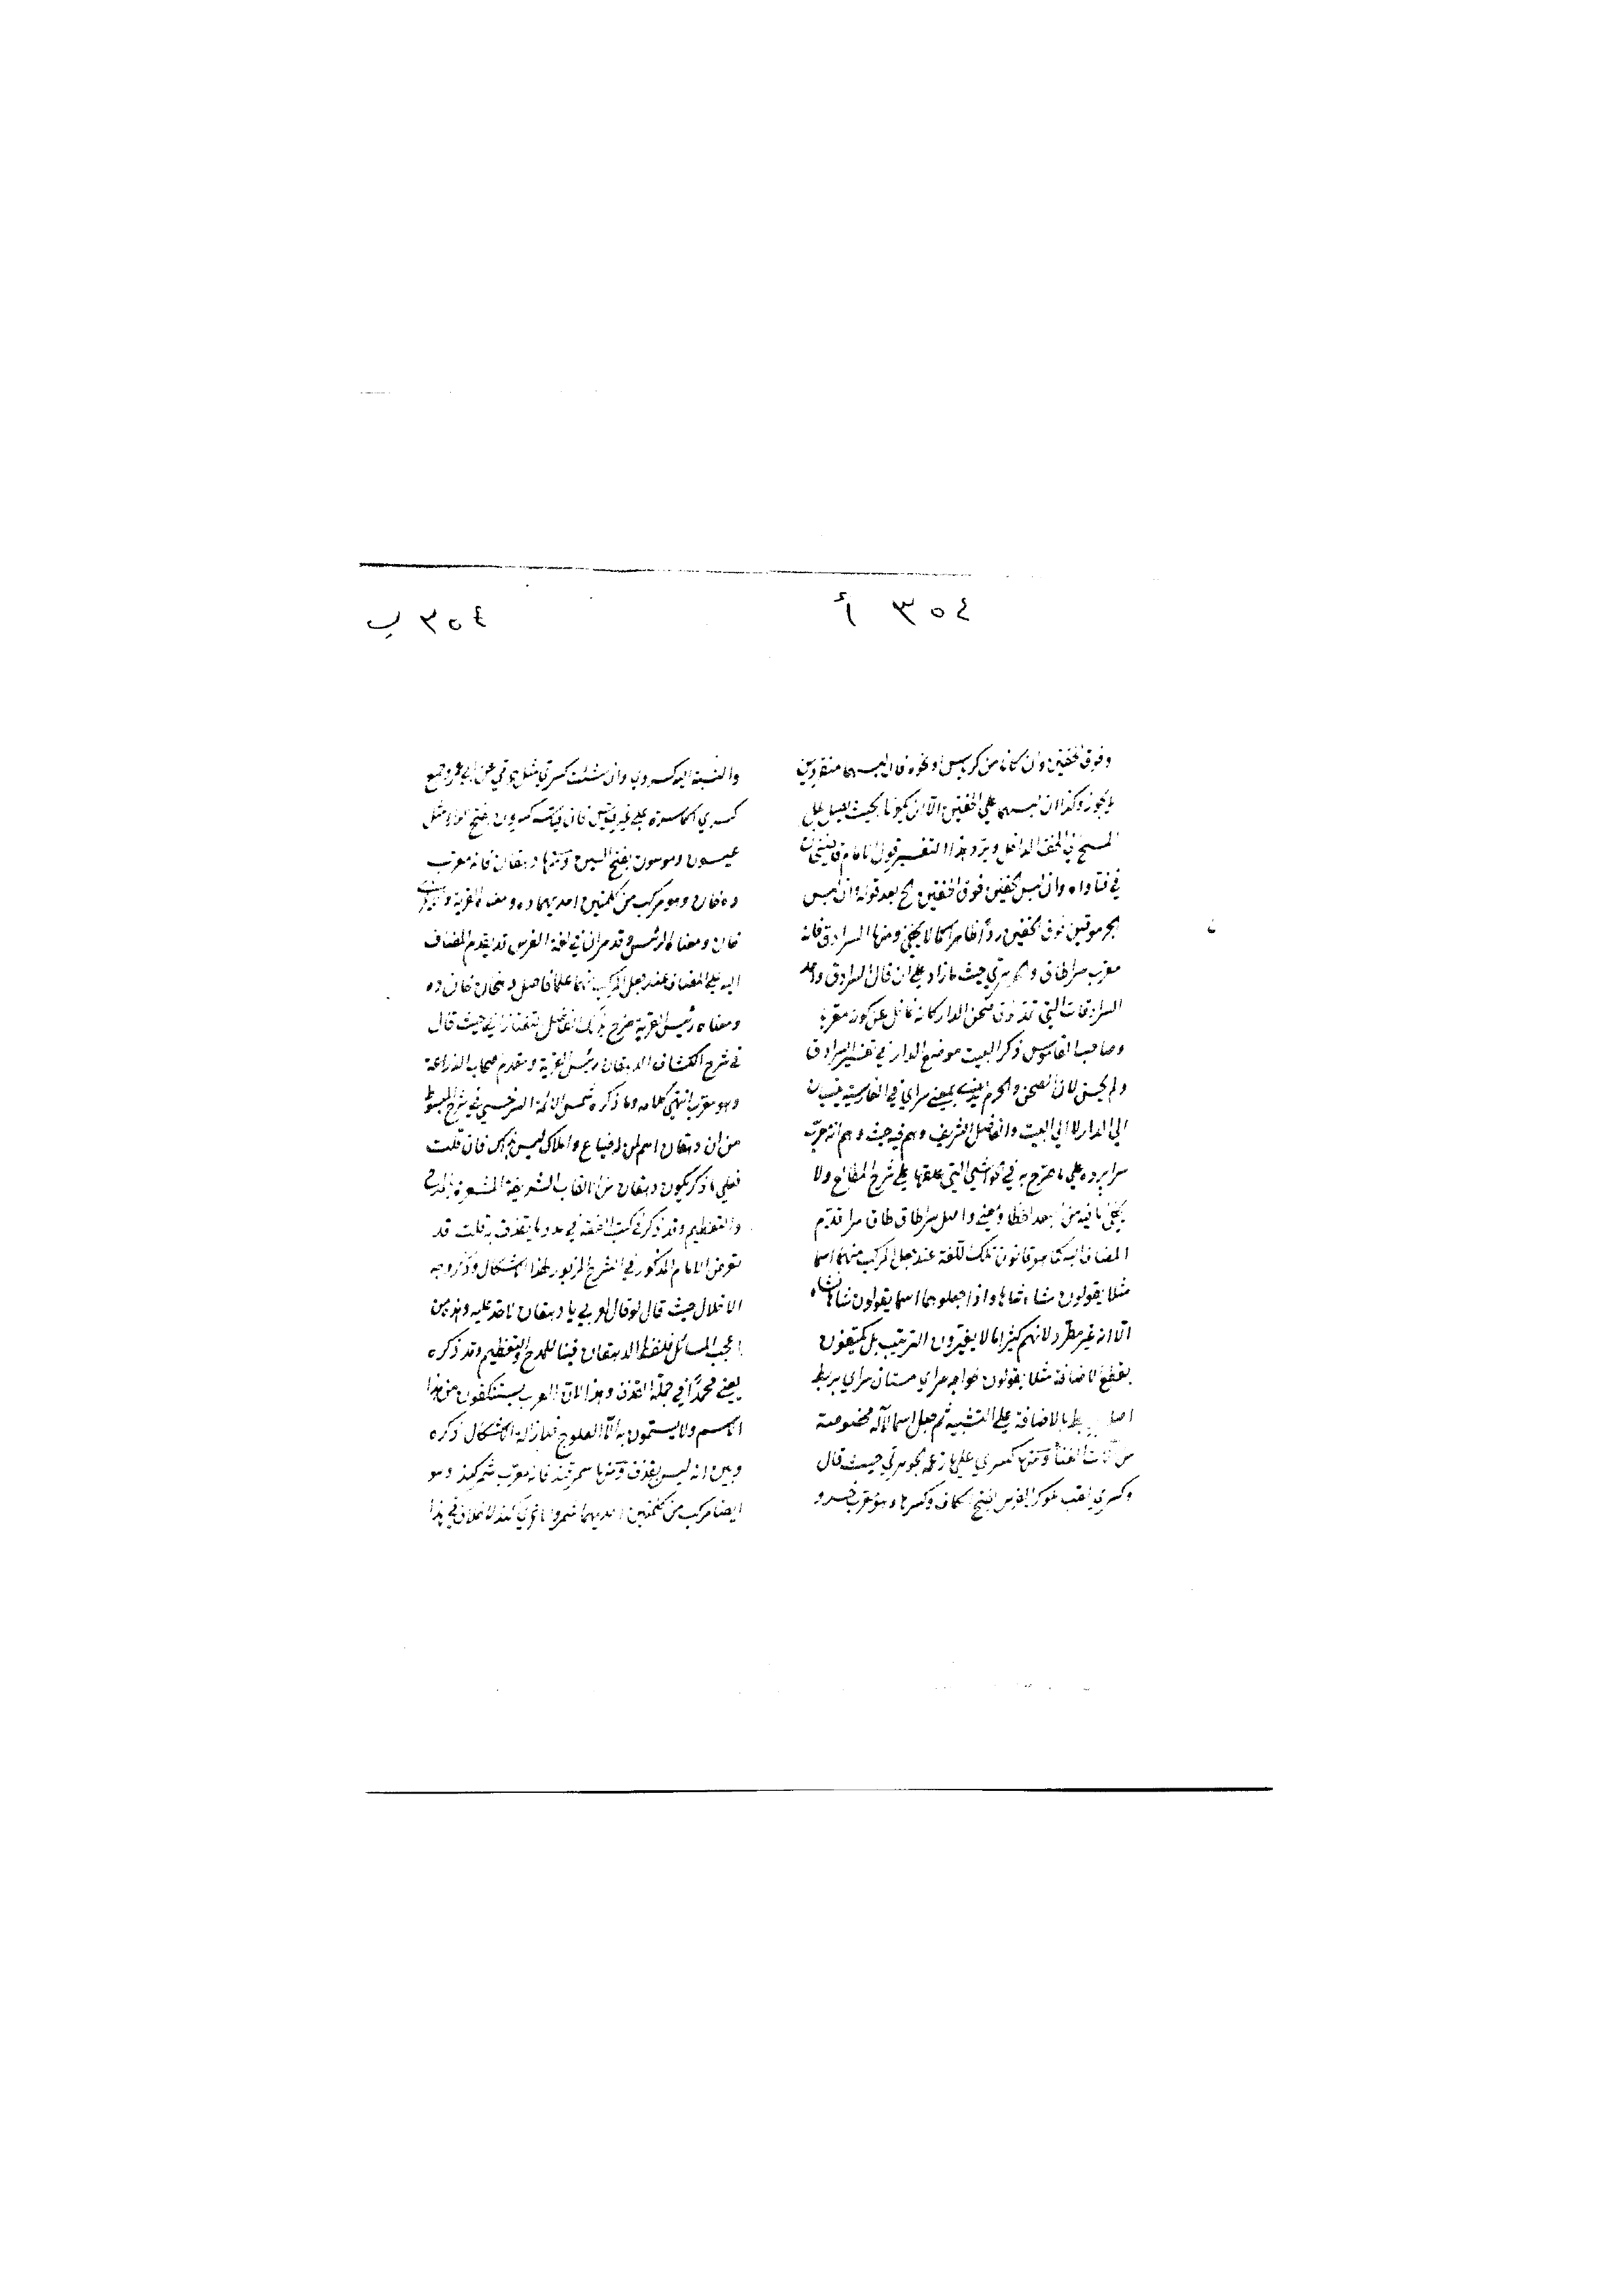 ٣٥٤ أ
وفوق الخفين وان كانا من كرباس او نحوه فان لبسهما منفردين
لا يجوز وكذا ان لبسهما على الخفين الا ان يكونا بحيث يصل بلل
المسح الى الخف الداخل ويرد هذا التفسير قول الامام قاضيخان
في فتاواه وان لبس الخفين فوق الخفين بعد قوله وان لبس
الجرموقين فوق الخفين رداً ظاهرا كما لا يخفى ومنها السرادق فانه
معرب سراطاق والجوهري حيث ما زاد على ان قال السرادق واحد
السرادقات التي تمد فوق صحن الدار كانه غافل عن كونه معربا
وصاحب القاموس ذكر البيت موضع الدار في تفسير السرادق
ولم يحسن لان الصحن والحرم بمعنى سراي في الفارسية ينسبان
الى الدار لا الى البيت والفاضل الشريف وهم فيه حيث وهم انه معرب
سرابرده على ما صرح به في حواشيه التي علقها على شرح المطالع ولا
يخفى ما فيه من البعد لفظا ومعنى واصل سراطاق طاق سرا قدم
المضاف اليه كما هو قانون تلك اللغة عند جعل المركب منهما اسما
مثلا يقولون شاه شاهان واذا جعلوهما اسما يقولون شاهانشاه
الا انه غير مطرد لانهم كثيرا ما لا يغيرون الترتيب بل يكتفون
بقطع الاضافة مثلا يقولون خواجه سراي مستان سراي بربط
بط بالاضافة على التشبيه ثم جعل اسما لآلة مخصوصة
من آلات الغناء ومنها كسرى على ما زعمه الجوهري حيث قال
وكسرى لقب ملوك الفرس بفتح الكاف وكسرها وهو معرب خسرو
٣٥٤ ب
والنسبة اليه كسروي وان شئت كسري مثل حرمي عن ابي عمرو جمع
كسرى اكاسرة على غير قياس فان قياسه كسرون بفتح الراء مثل
عيسون وموسون بفتح السين ومنها دهقان فانه معرب
ده خان وهو مركب من كلمتين احديهما ده ومعناه القرية
خان ومعناه الرئيس وقد مر ان في لغة الفرس قد يقدم المضاف
اليه على المضاف عند جعل المركب منهما علما فاصل دهخان خان ده
ومعناه رئيس القرية صرح بذلك الفاضل التفتازاني حيث قال
في شرح الكشاف الدهقان رئيس القرية ومقدم اصحاب الزراعة
وهو معرب انتهى كلامه وما ذكره شمس الائمة السرخسي في شرح المبسوط
من ان دهقان اسم لمن له ضياع واملاك ليس بذاك فان قلت
فعلى ما ذكر يكون دهقان من القاب الشريفة المشعرة بالمدح
والتعظيم وقد ذكر في كتب الفقه في عدد ما يقذف به قلت قد
تعرض الامام المذكور في الشرح المزبور لهذا الاشكال وذكر وجه
الانحلال حيث قال لو قال لعربي يا دهقان لا حد عليه وهذا من
اعجب المسائل فلفظ الدهقان فينا للمدح والتعظيم وقد ذكره
يعني محمداً في جملة القذف وهذا لان العرب يستنكفون من هذا
الاسم ولا يسمون به الا العلوج فلازالة الاشكال ذكره
وبين انه ليس بقذف ومنها سمرقند فانه معرب شمركند وهو
ايضا مركب من كلمتين احديهما شمر والاخرى كند لا خلاف في هذا